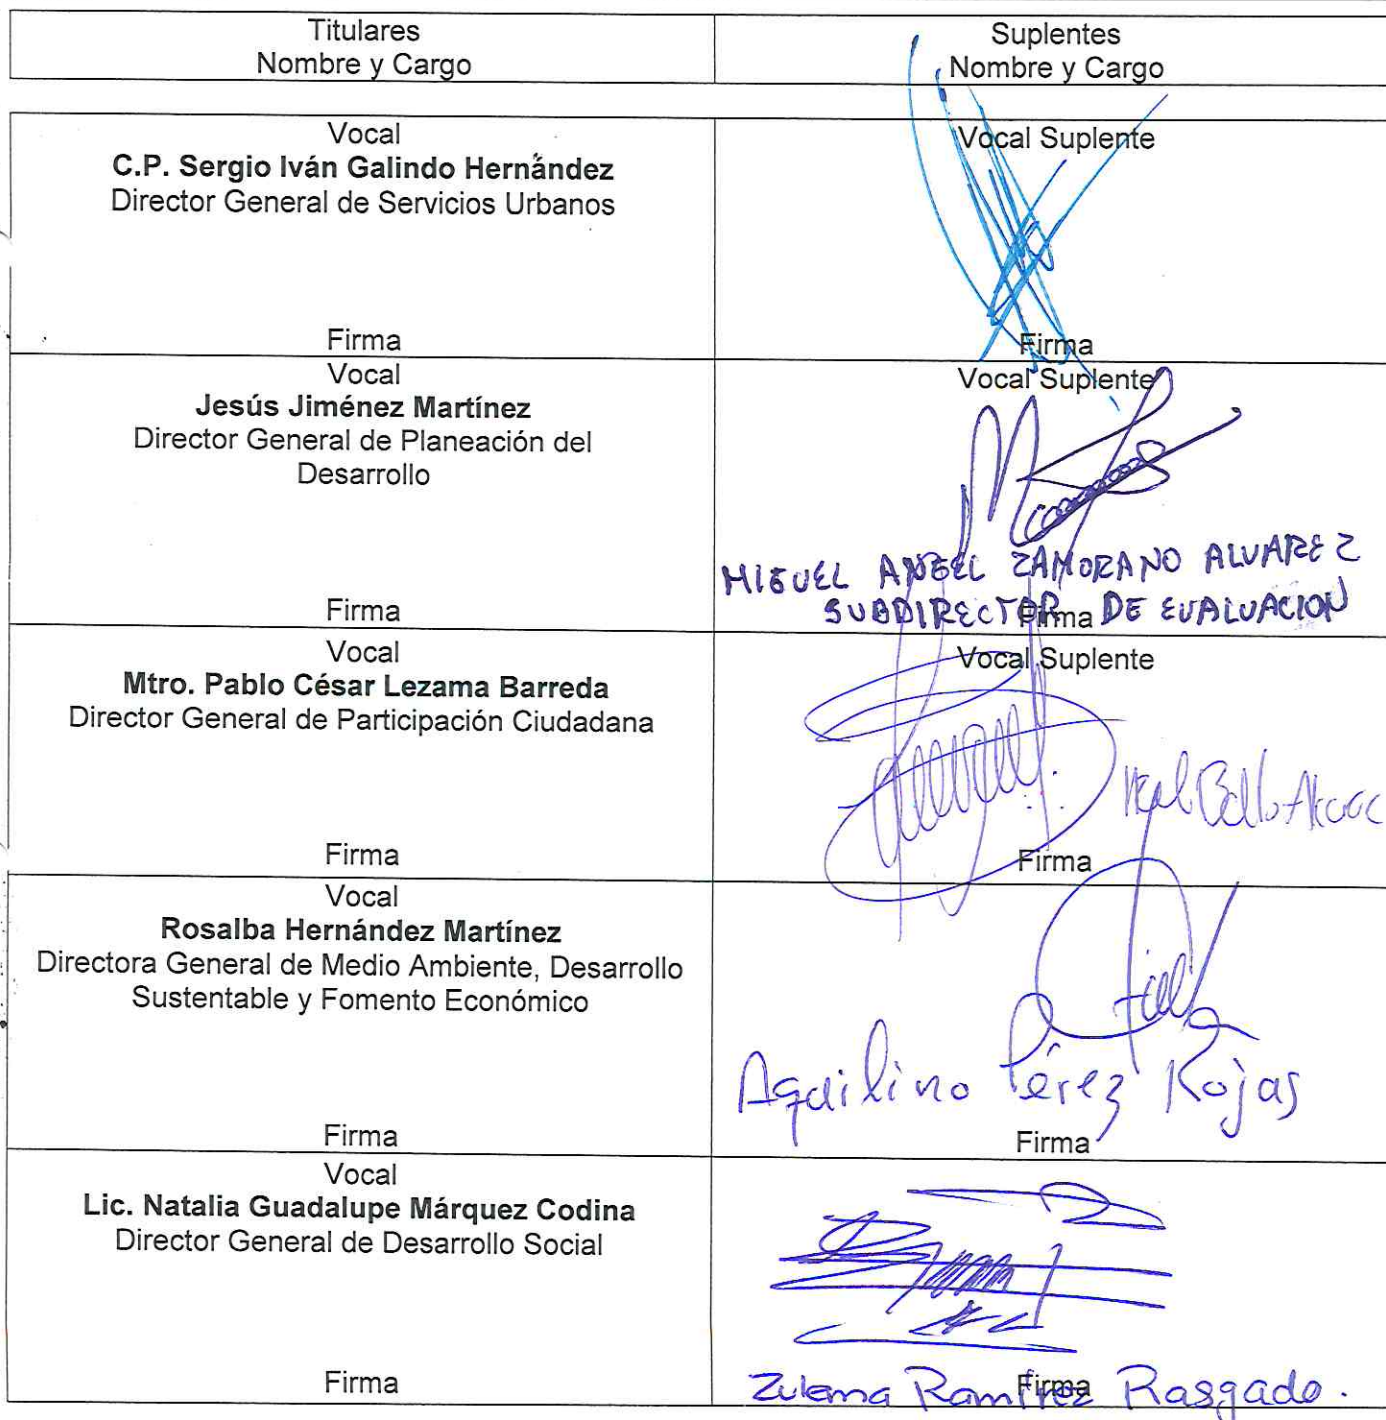 Titulares
Nombre y Cargo
Suplentes
Nombre y Cargo
Vocal
C.P. Sergio Iván Galindo Hernández
Director General de Servicios Urbanos
Firma
Vocal Suplente
Firma
Vocal
Jesús Jiménez Martínez
Director General de Planeación del
Desarrollo
Firma
Vocal Suplente
MIGUEL ANGEL ZAMORANO ALVAREZ
SUBDIRECTOR DE EVALUACION
Firma
Vocal
Mtro. Pablo César Lezama Barreda
Director General de Participación Ciudadana
Firma
Vocal Suplente
Bello
Firma
Vocal
Rosalba Hernández Martínez
Directora General de Medio Ambiente, Desarrollo
Sustentable y Fomento Económico
Firma
Aquilino Pérez Rojas
Firma
Vocal
Lic. Natalia Guadalupe Márquez Codina
Director General de Desarrollo Social
Firma
Zulema Ramírez Rasgado.
Firma